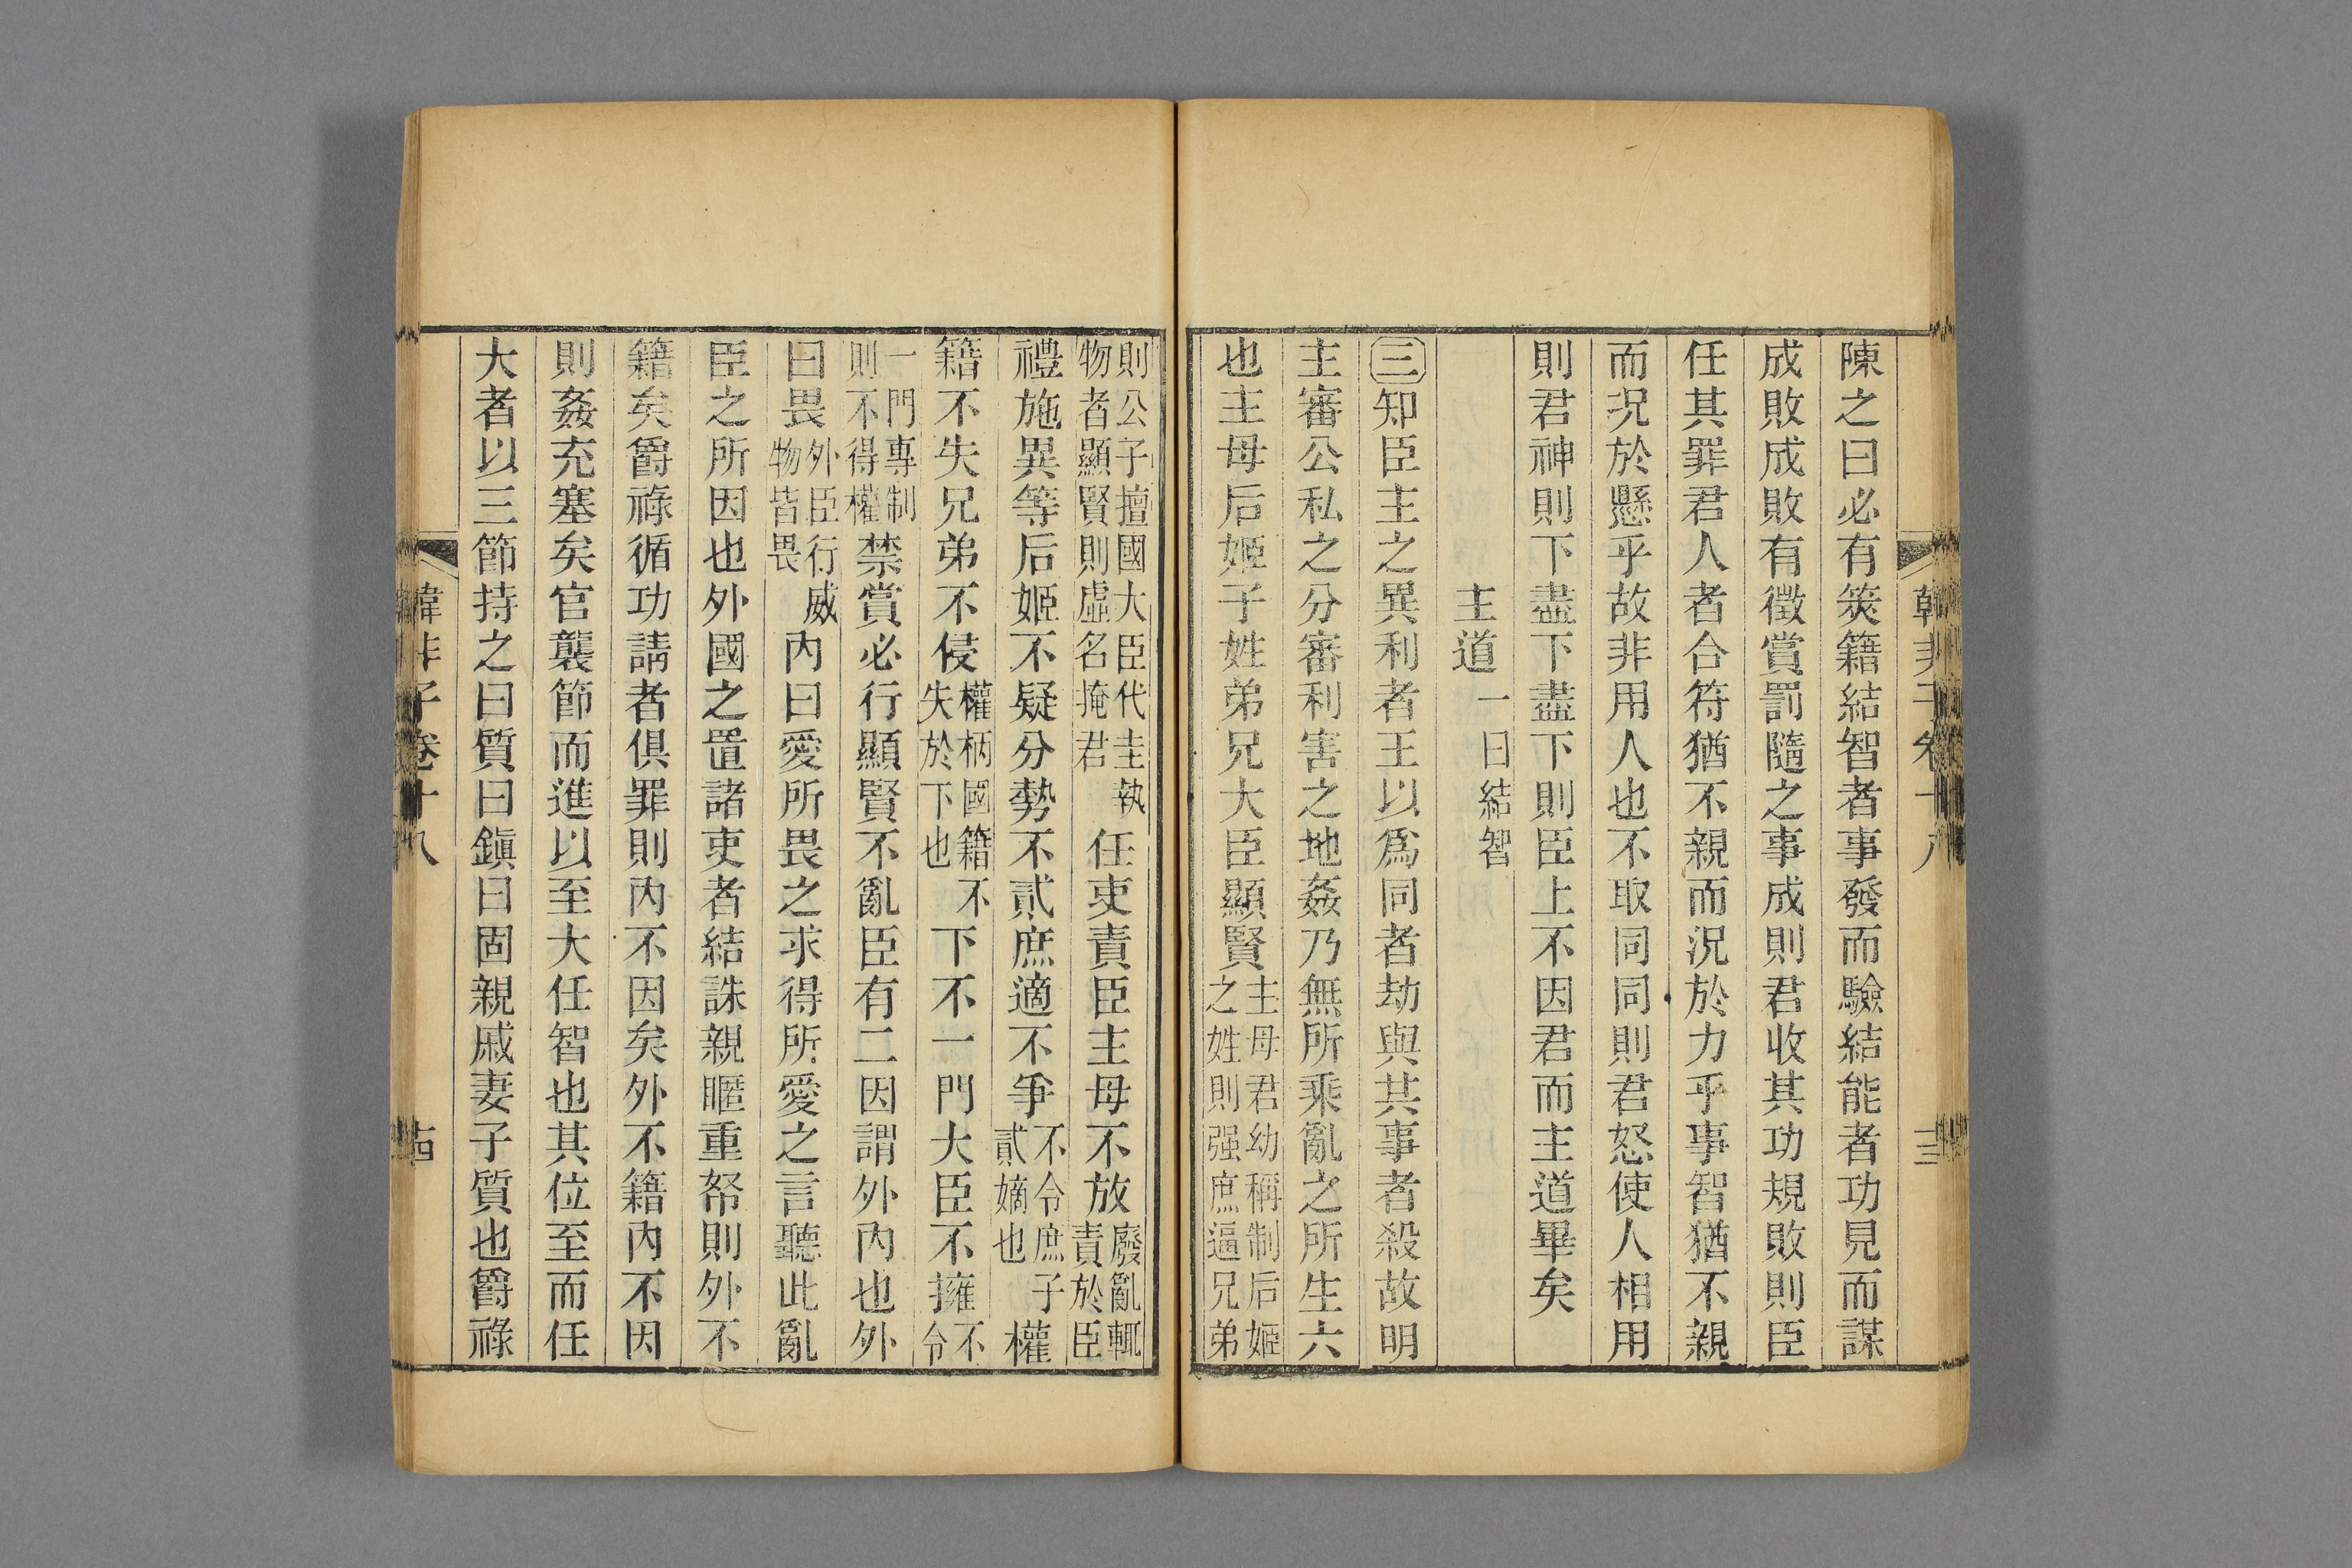 韓非子卷十八
十三
陳之曰必有筴籍結智者事發而驗結能者功見而謀
成敗成敗有徵賞罰隨之事成則君收其功規敗則臣
任其罪君人者合符猶不親而況於力乎事智猶不親
而況於懸乎故非用人也不取同同則君怒使人相用
則君神則下盡下盡下則臣上不因君而主道畢矣
主道一曰結智
三知臣主之異利者王以爲同者劫與共事者殺故明
主審公私之分審利害之地姦乃無所乘亂之所生六
也主母后姬子姓弟兄大臣顯賢主母君幼稱制后姬之姓則强庶逼兄弟
則公子擅國大臣代圭執物者顯賢則虛名掩君任吏責臣主母不放廢亂輒責於臣
禮施異等后姬不疑分勢不貳庶適不爭不令庶子貳嫡也權
籍不失兄弟不侵權柄國籍不失於下也下不一門大臣不擁不令
一門專制則不得權禁賞必行顯賢不亂臣有二因謂外內也外
曰畏外臣行威物皆畏內曰愛所畏之求得所愛之言聽此亂
臣之所因也外國之置諸吏者結誅親暱重帑則外不
籍矣爵祿循功請者俱罪則內不因矣外不籍內不因
則姦充塞矣官襲節而進以至大任智也其位至而任
大者以三節持之曰質曰鎭曰固親戚妻子質也爵祿
韓非子卷十八
十四